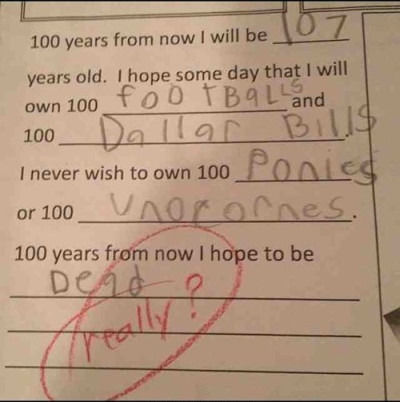 100 years from now I will be 107
years old. I hope some day that I will
own 100 footBalls and
100 Dallar Bills.
I never wish to own 100 Ponies
or 100 Unorornes.
100 years from now I hope to be
Dead
really?